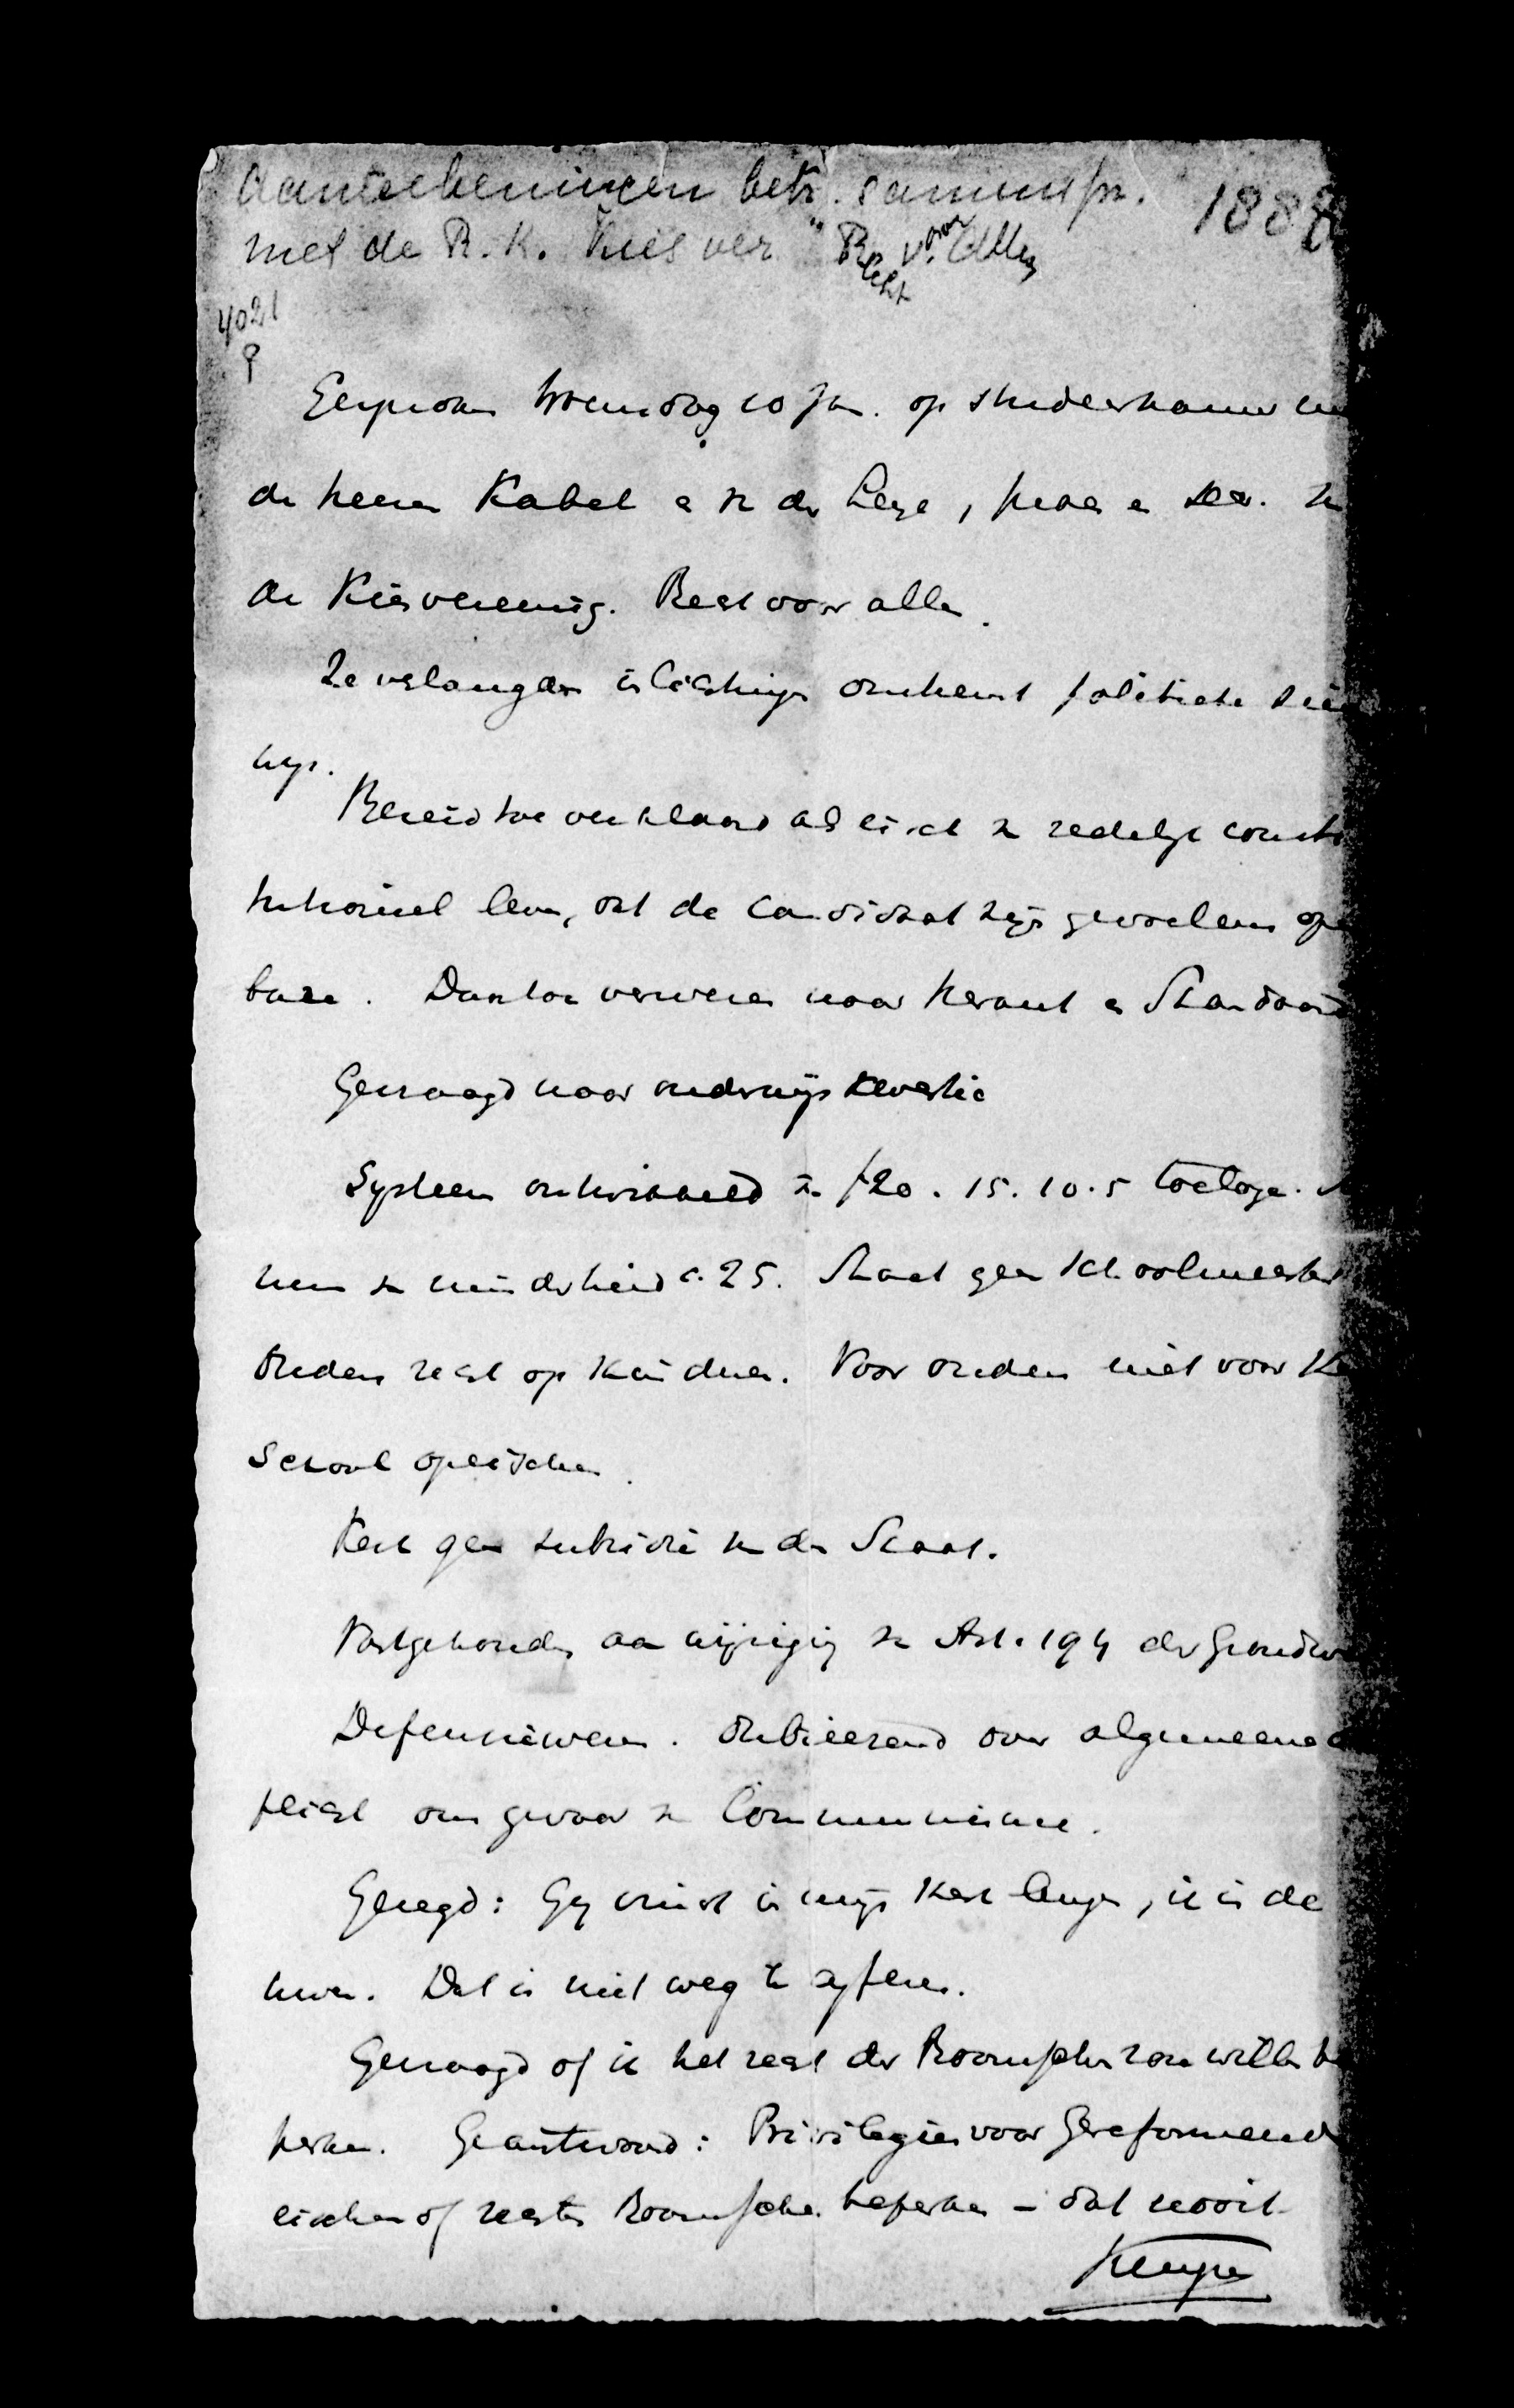 Aanteekeningen betr. samenspr. 1888
met de R.K. Kiesver "Recht voor Allen
4021
Gesproken Woensdag 10 Jan. op studeerkamer
de heeren Kabel e v. der , praes e secr. v.
de Kiesvereenig. Recht voor alle.
Ze verlangden inlichtingen omtrent politieke
wijs.
Bereid toe verklaard als eisch v. redelijk consti
tutioneel leven, dat de candidaat zijn gevoelens ope
bare. Dan toe verwezen naar Heraut e Standaard
Gevraagd naar onderwijs kwestie
Systeem ontwikkeld v. f20. 15. 10. 5 toelage.
v. minderheid c. 25. Staat geen schoolmeester
Ouders recht op kinderen. Voor ouders niet voor K
school opeischen.
Kerk geen subsidie v. den Staat.
Vastgehouden aan wijziging v. Art. 194 der Grondw
Defensiewezen. over algemeene
plicht om gevaar v. Commune.
Gezegd: Gij moet in mijn kerk , ik in de
uwe. Dat is niet weg te cijferen.
Gevraagd of ik het recht der Roomschen zou willen be
perken. Geantwoord: Privilegiën voor Gereformeerd
eischen of rechten Roomschen beperken – dat nooit
Kuyper